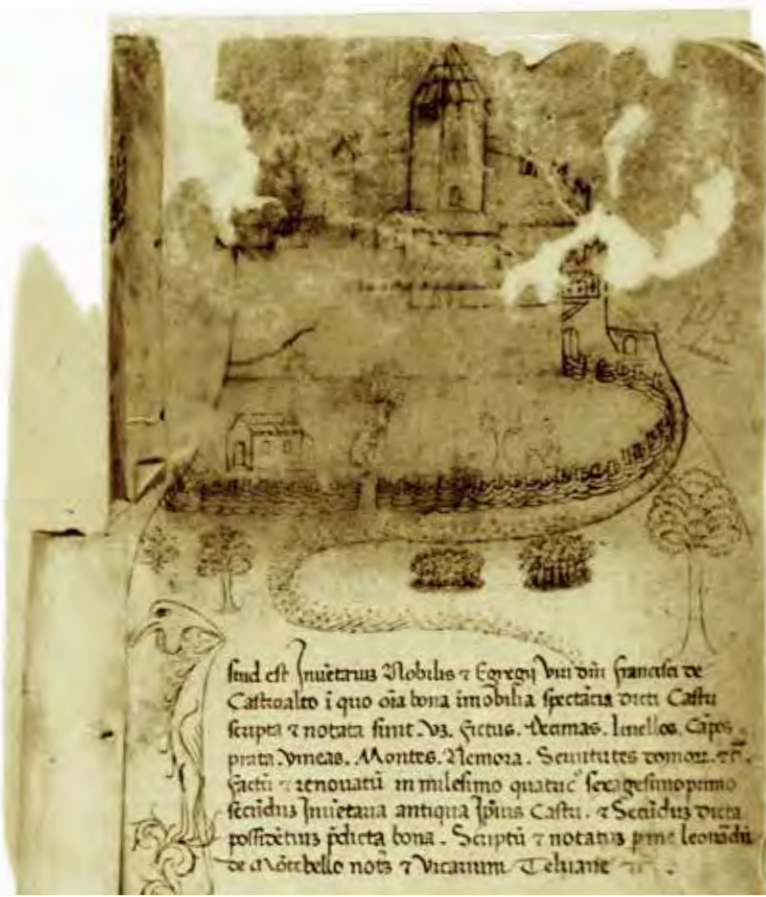 143
Istud est Inuētariuȝ Nobilis ⁊ Egregij Viri dn̄i francisci de
Castroalto ī quo oīa bona imobilia spectātia dicti Castri
scripta ⁊ notata sunt. Vȝ. fictus. Decimas. liuellos. Cāpos.
prata. Vineas. Montes. Nemora. Seruitutes
factū ⁊ renouatū in milesimo quatuc̄ sexagesimoprimo
secūduȝ Inuētaria antiqua Ip̄ius Castri. ⁊ Secūduȝ dicta
possidētiuȝ p̄dicta bona. Scriptū ⁊ notatuȝ p me leonādū
de Mōtebello notȝ ⁊ Vicarium Teluane